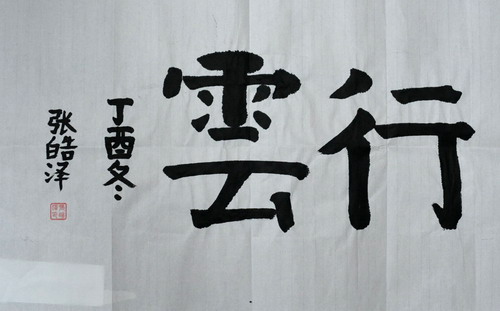 行雲
丁酉冬
张皓泽